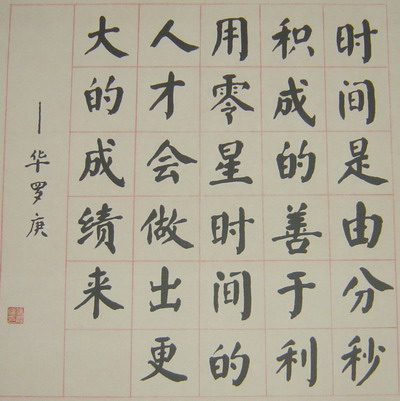 时间是由分秒
积成的善于利
用零星时间的
人才会做出更
大的成绩来
—华罗庚